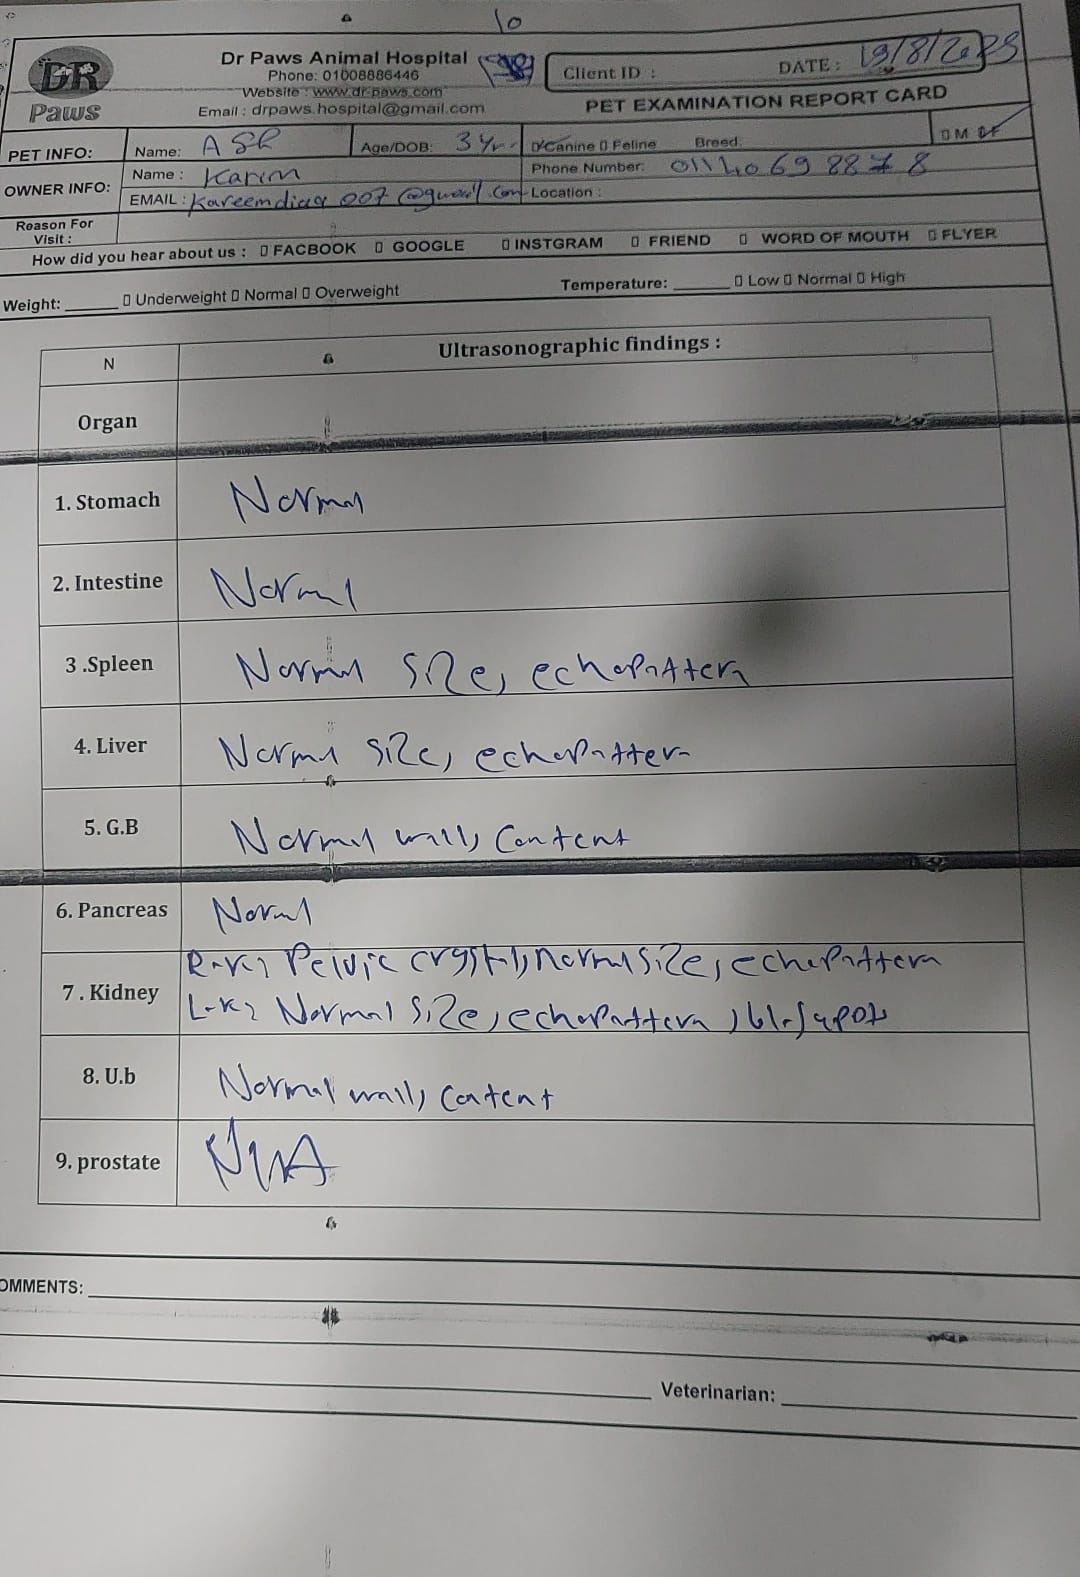 10
DR
Paws
Dr Paws Animal Hospital
Phone: 01008886446
Website : www.dr-paws.com
Email : drpaws.hospital@gmail.com
Client ID :
DATE : 19/8/2025
PET EXAMINATION REPORT CARD
PET INFO: Name: Age/DOB: 3 Yr Canine Feline Breed: M F
OWNER INFO: Name : Karim Phone Number: 01140698878
EMAIL : Location :
Reason For
Visit :
How did you hear about us : FACBOOK GOOGLE INSTGRAM FRIEND WORD OF MOUTH FLYER
Weight: Underweight Normal Overweight Temperature: Low Normal High
N Ultrasonographic findings :
Organ
1. Stomach Normal
2. Intestine Normal
3 .Spleen Normal size, echopattern
4. Liver Normal size, echopattern
5. G.B Normal wall, Content
6. Pancreas Normal
7 . Kidney R-K: Pelvic crystal, normal size, echopattern
L-K: Normal size, echopattern,
8. U.b Normal wall, Content
9. prostate
OMMENTS:
Veterinarian: